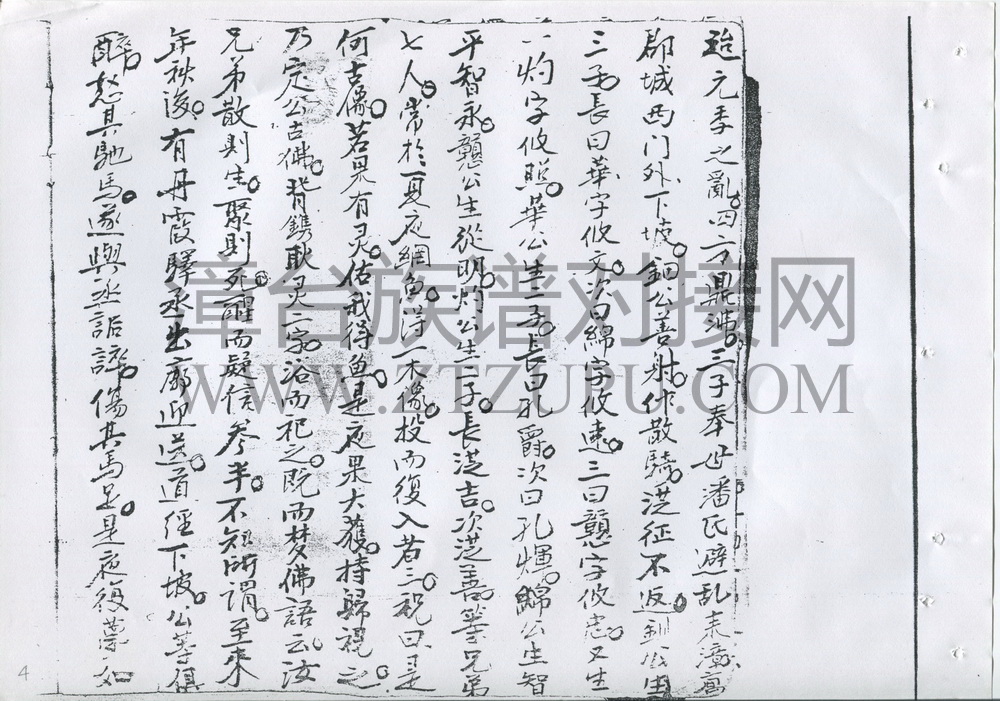 元季之亂。四方鼎沸。三子奉母潘氏避乱来漳寓
郡城西门外下坡。鈿公善射。作散騎。従征不返。生
三子。長曰華字攸文。次曰綿字攸速。三曰戇字攸忠。又生
一灼字攸照。華公生二子。長曰孔爵。次曰孔煇。綿公生智
平智永。戇公生從明。灼公生二子。長從吉。次從善。等兄弟
七人。常於夏夜網魚。浮一木像。投而復入者三。祝曰是
何古像。若果有灵。佑我得鱼。是夜果大獲。持歸視之
乃定公古佛。背鐫耿灵二字。浴而祀之。既而梦佛語云汝
兄弟散則生。聚則死。醒而疑信参半。不知所謂。至来
年秋後。有丹霞驛丞出廓迎送。道經下坡。公等俱
醉。怒其馳馬。遂與丞詬誶。傷其馬足。是夜復夢如
章台族谱对接网
WWW.ZTZUPU.COM
4